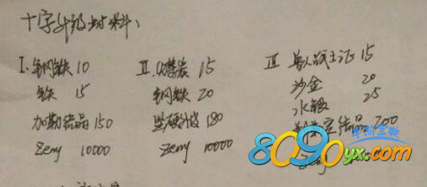 十字升级材料:
I. 钢铁 10
铁 15
加勒结晶 150
Zeny 10000
II. 15
钢铁 20
坚硬皮 180
Zeny 10000
III 15
沙金 20
水银 25
结晶 200
8090yx.com